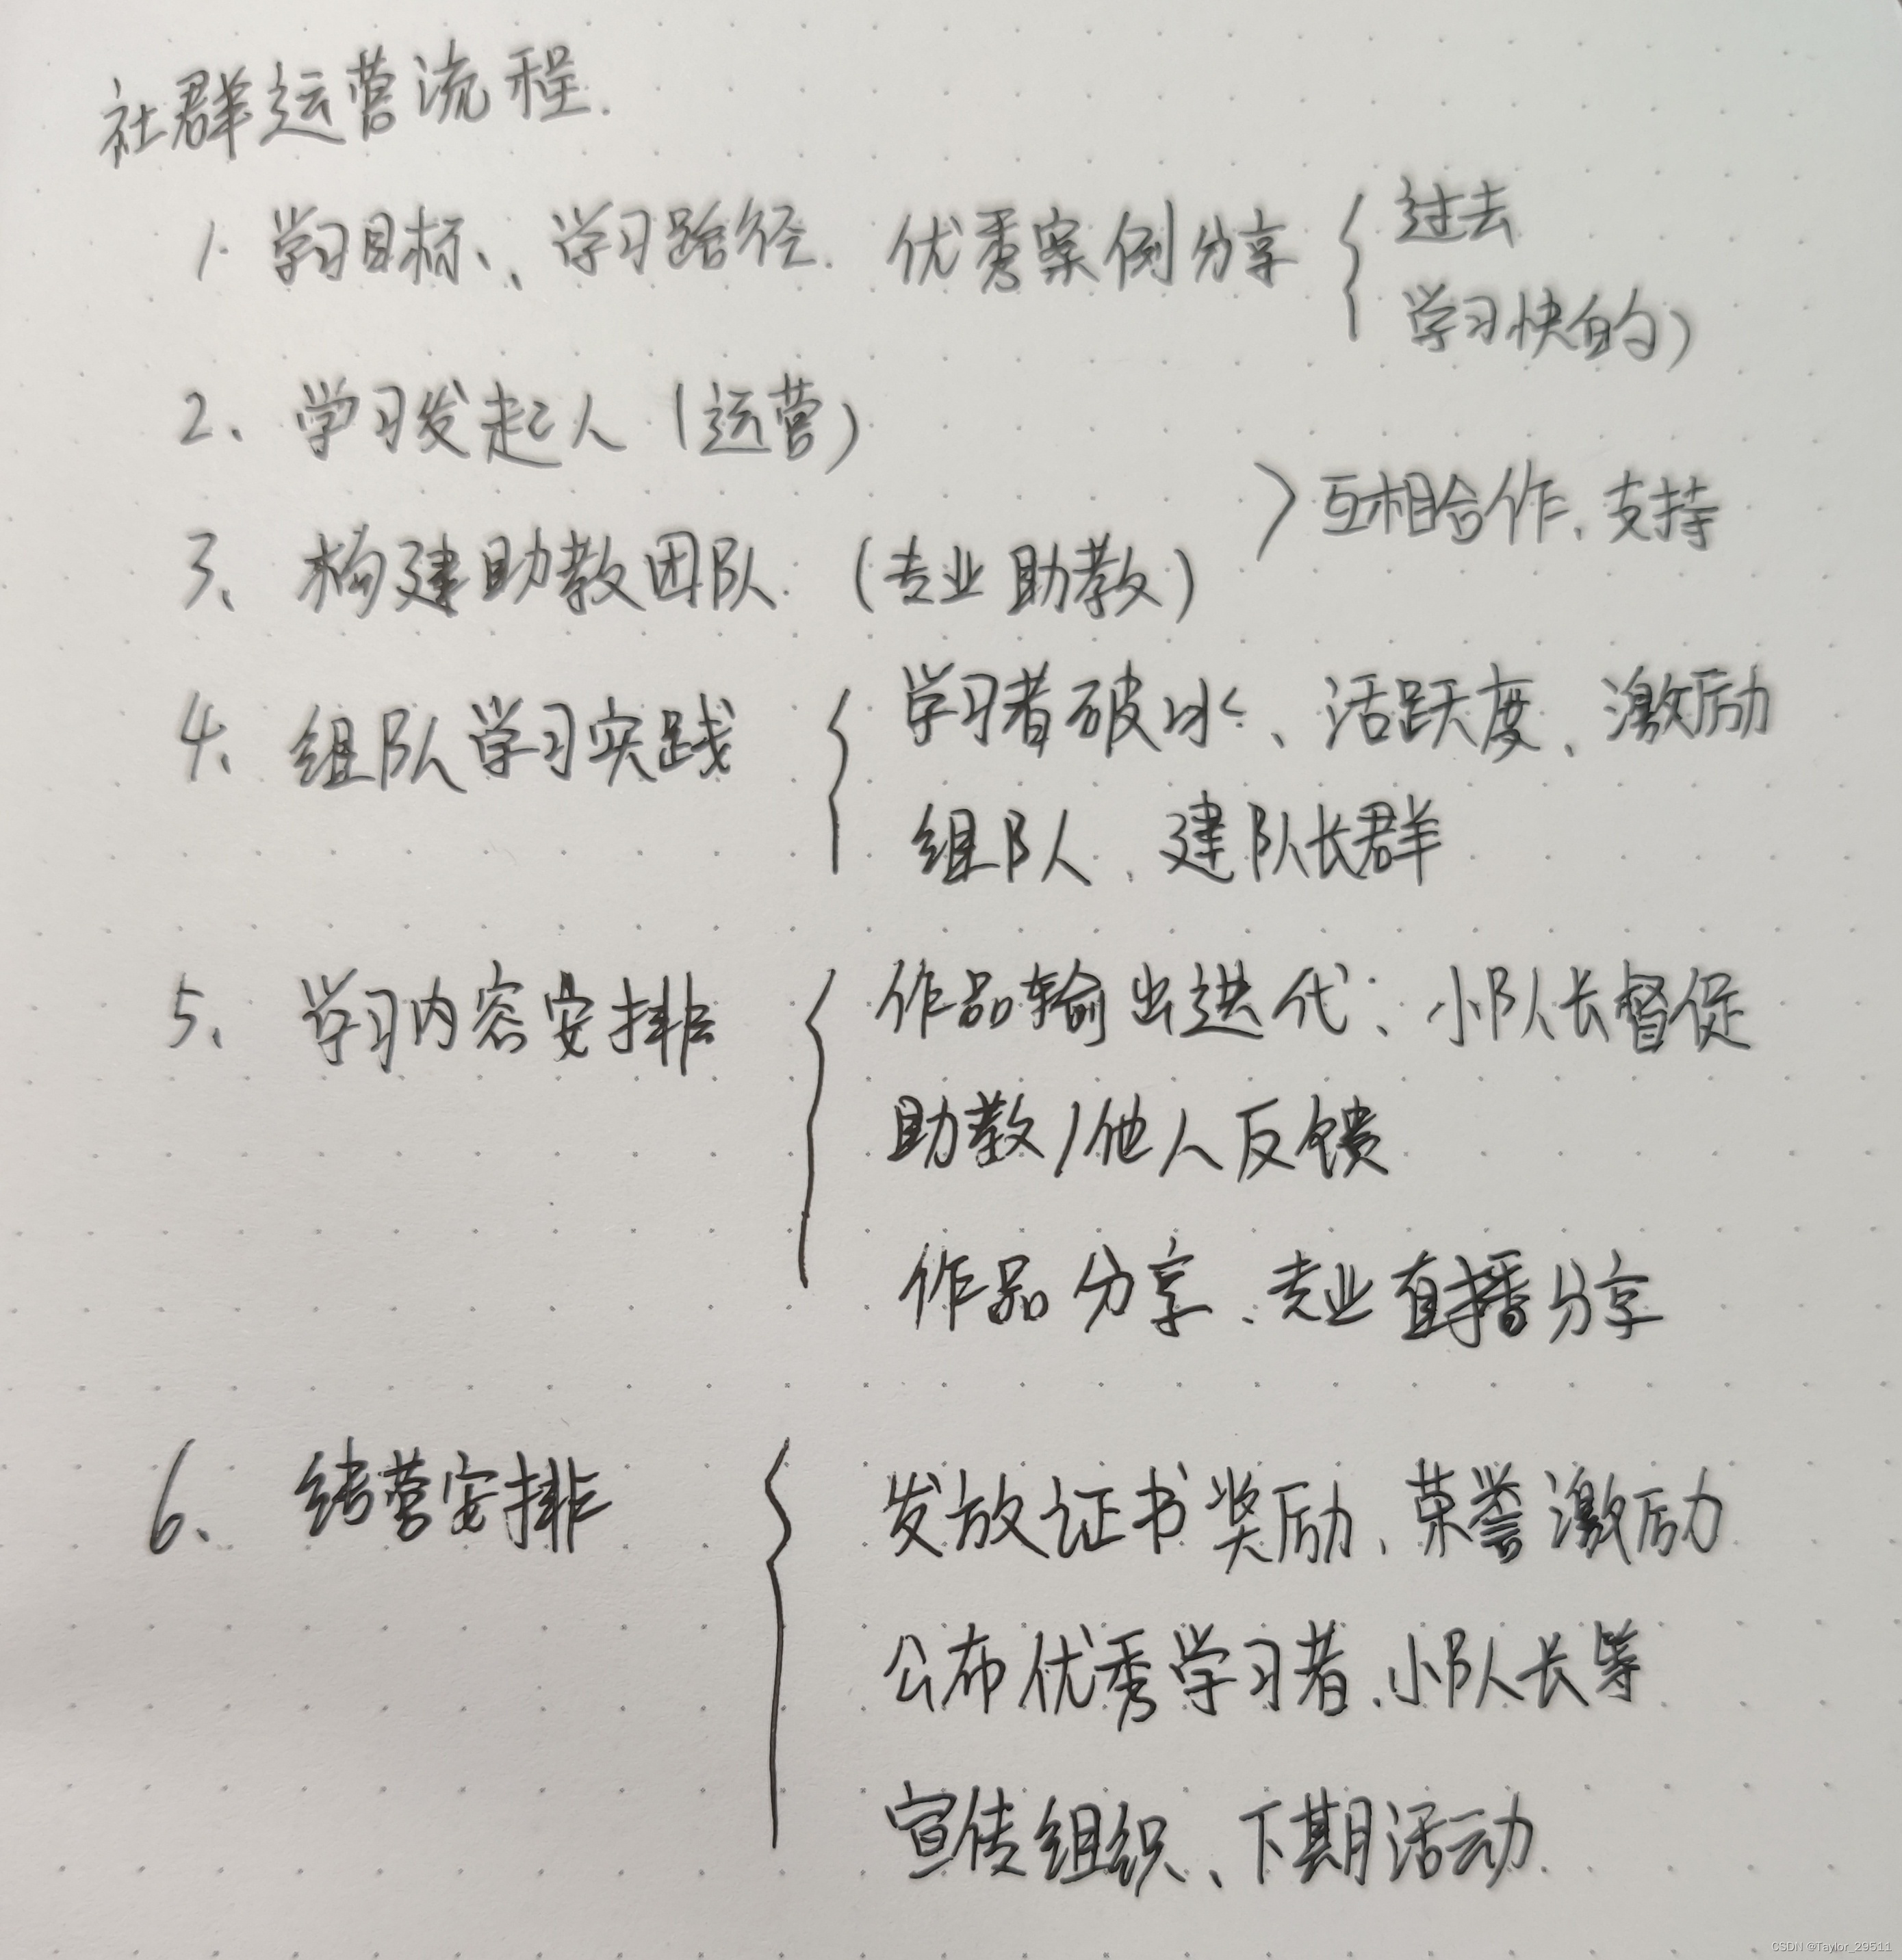 社群运营流程.
1. 学习目标、学习路径. 优秀案例分享 { 过去
学习快的)
2、学习发起人(运营)
> 互相合作、支持
3、构建助教团队. (专业助教)
4、组队学习实践 { 学习者破冰、活跃度、激励
组队、建队长群
5、学习内容安排 { 作品输出迭代: 小队长督促
助教/他人反馈
作品分享、专业直播分享
6、结营安排 { 发放证书奖励、荣誉激励
公布优秀学习者、小队长等
宣传组织、下期活动
CSDN @Taylor_29511